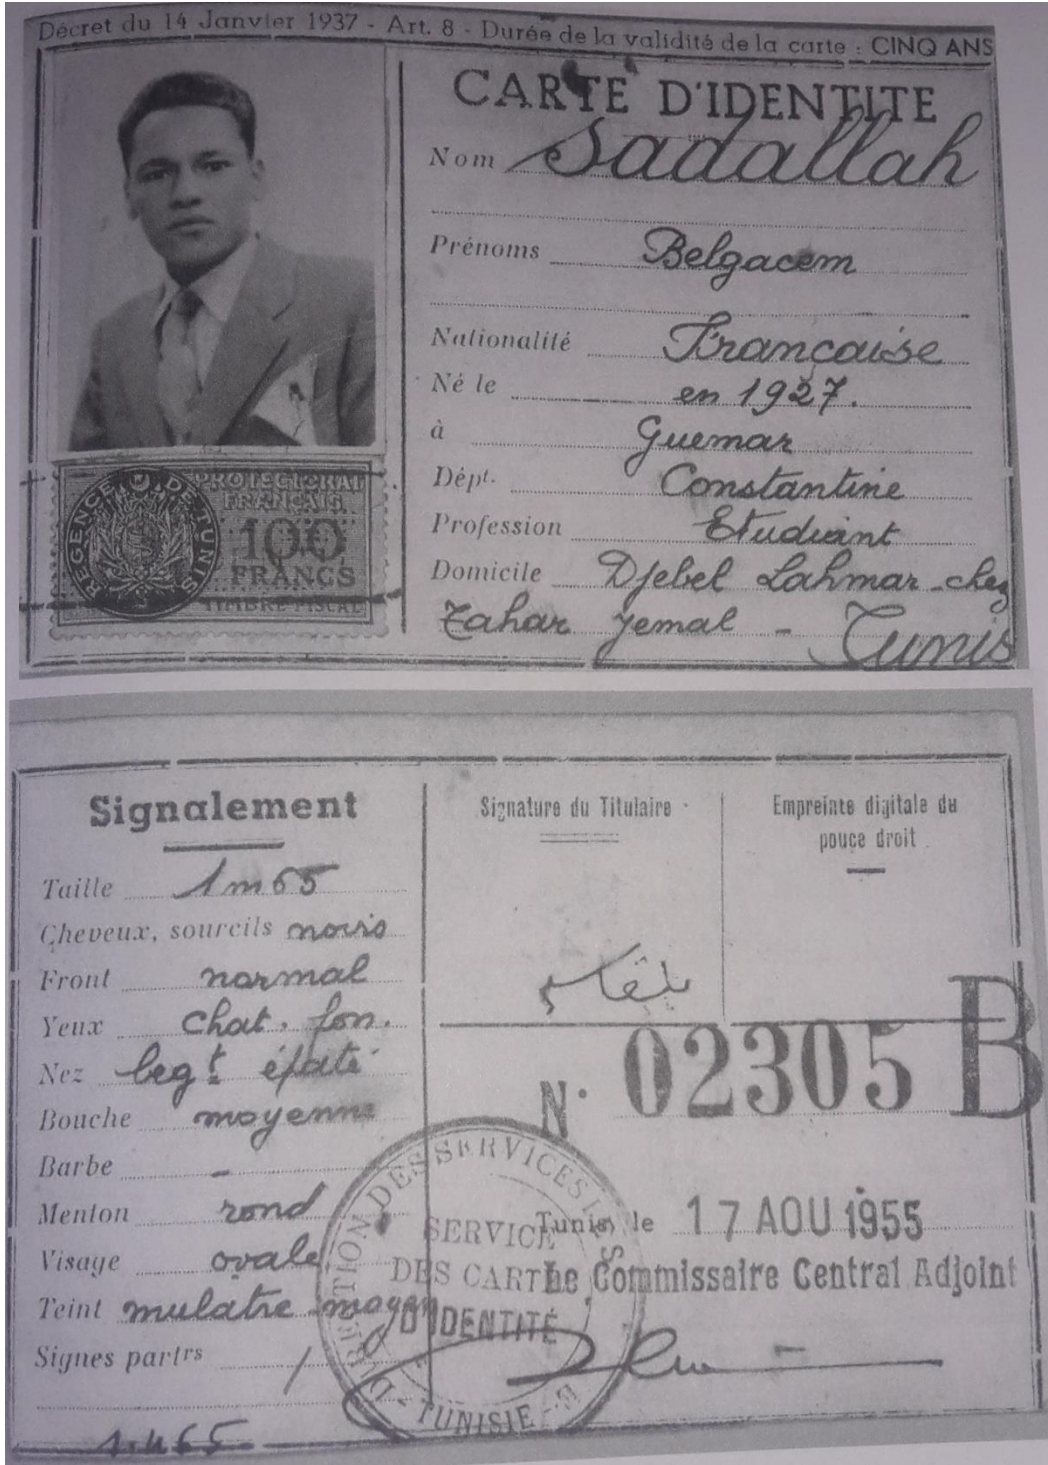 Décret du 14 Janvier 1937 - Art. 8 - Durée de la validité de la carte : CINQ ANS
CARTE D'IDENTITE
Nom Sadallah
Prénoms Belgacem
Nationalité Française
Né le en 1927.
à Guemar
Dépt. Constantine
Profession Etudiant
Domicile Djebel Lahmar - chez
Zahar Jemal - Tunis
REGENCE DE TUNIS
PROTECTORAT
FRANÇAIS
100
FRANCS
TIMBRE FISCAL
Signalement
Taille 1m65
Cheveux, sourcils noirs
Front normal
Yeux chat. fon.
Nez legt épaté
Bouche moyenne
Barbe -
Menton rond
Visage ovale
Teint mulatre moyen
Signes partrs /
Signature du Titulaire
Empreinte digitale du
pouce droit
بلقاسم
N. 02305 B
Tunis, le 17 AOU 1955
Le Commissaire Central Adjoint
DIRECTION DES SERVICES
SERVICE
DES CARTES
D'IDENTITÉ
TUNISIE